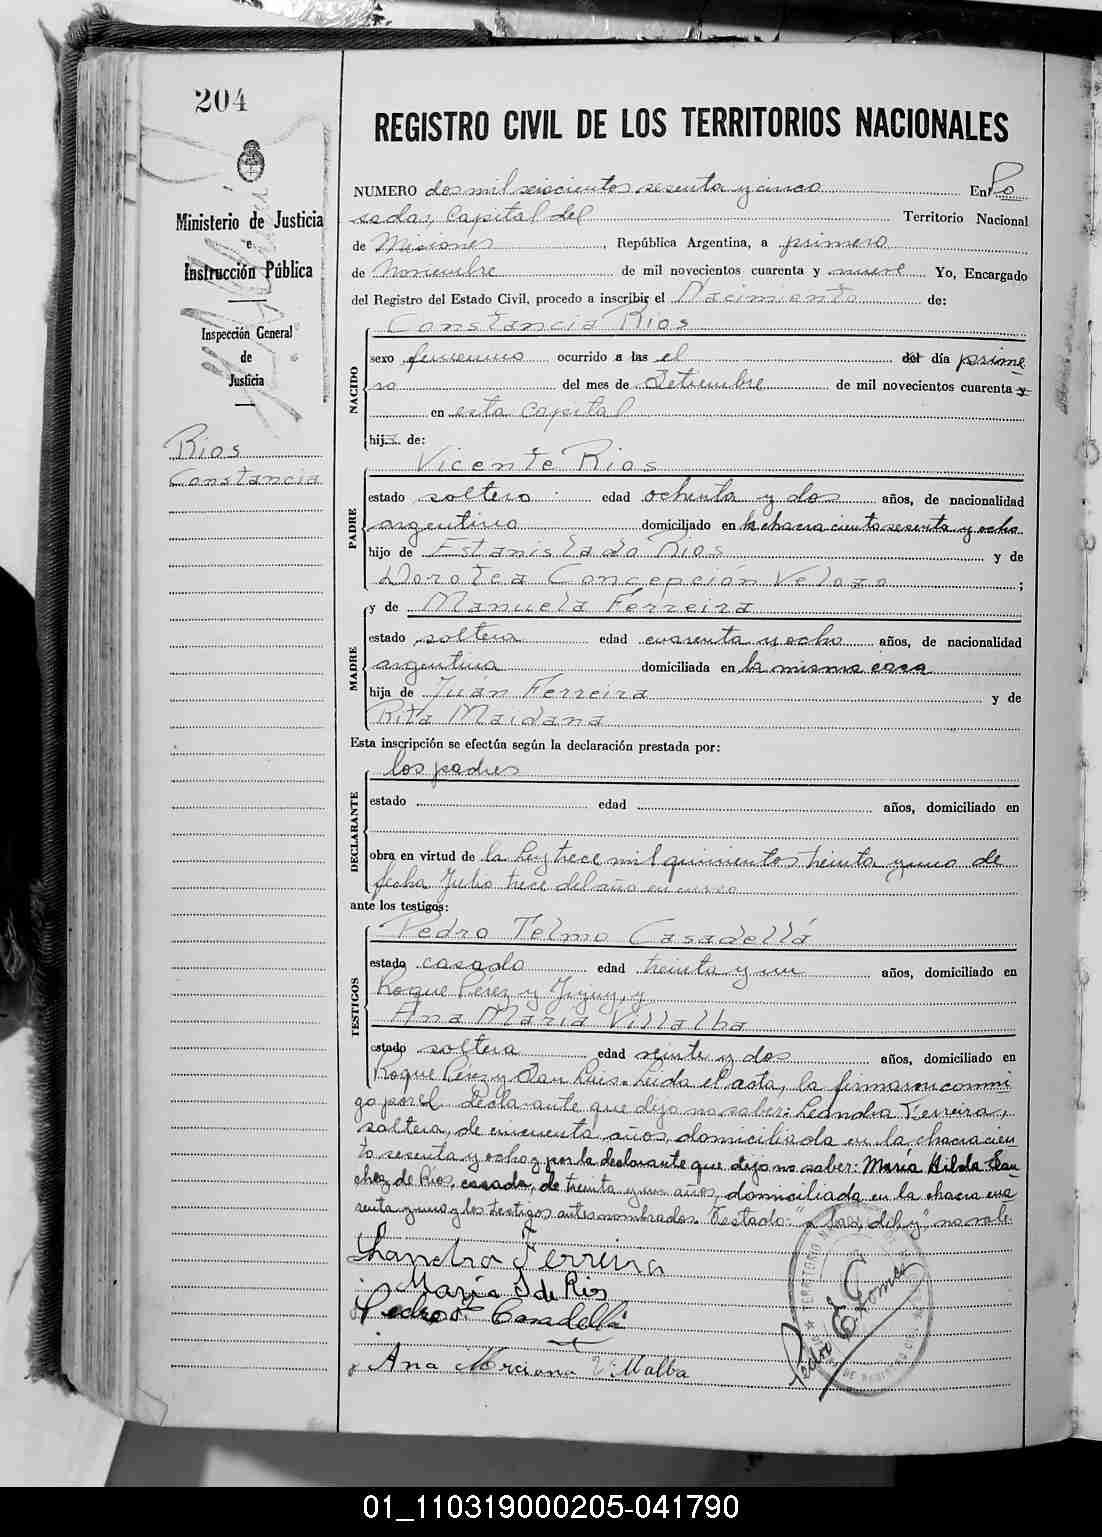 204
Ministerio de Justicia
e
Instrucción Pública
Inspección General
de
Justicia
Rios
Constancia
REGISTRO CIVIL DE LOS TERRITORIOS NACIONALES
NUMERO dos mil seiscientos sesenta y cinco En Po
sadas, Capital del Territorio Nacional
de Misiones, República Argentina, a primero
de Noviembre de mil novecientos cuarenta y nueve Yo, Encargado
del Registro del Estado Civil, procedo a inscribir el Nacimiento de:
NACIDO
Constancia Rios
sexo femenino ocurrido a las el del día prime
ro del mes de Setiembre de mil novecientos cuarenta y
en esta Capital
hija de:
PADRE
Vicente Rios
estado soltero edad ochenta y dos años, de nacionalidad
argentino domiciliado en la chacra ciento sesenta y ocho
hijo de Estanislado Rios y de
Dorotea Concepción Velozo ;
MADRE
y de Manuela Ferreira
estado soltera edad cuarenta y ocho años, de nacionalidad
argentina domiciliada en la misma casa
hija de Juán Ferreira y de
Rita Maidana
Esta inscripción se efectúa según la declaración prestada por:
DECLARANTE
los padres
estado edad años, domiciliado en
obra en virtud de la Ley trece mil quinientos treinta y uno de
fecha Julio trece del año en curso
ante los testigos:
TESTIGOS
Pedro Telmo Casadellá
estado casado edad treinta y un años, domiciliado en
Roque Pérez y Jujuy, y
Ana María Villalba
estado soltera edad veinte y dos años, domiciliado en
Roque Pérez y San Luis. Leida el acta, la firmaron conmi
go por el declarante que dijo no saber: Leandra Ferreira,
soltera, de cincuenta años, domiciliada en la chacra cien
to sesenta y ocho y por la declarante que dijo no saber: María Hilda San
chez de Rios, casada, de treinta y un años, domiciliada en la chacra cua
renta y uno y los testigos antes nombrados. Testado: "a las, del, y", no vale.
Leandra Ferreira
María S de Rios
Pedro T. Casadellá
Ana Mrciana Villalba
Pedro E. Gomez
01_110319000205-041790